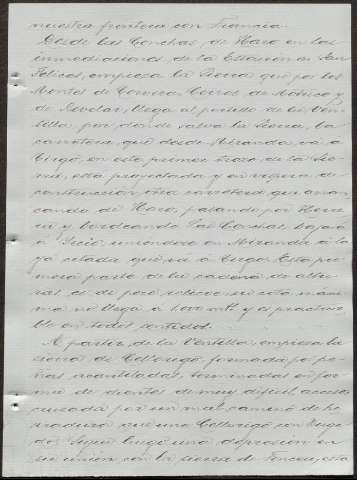 nuestra frontera con Francia.
Desde las Conchas de Haro en las
inmediaciones de la Estación de San
Felices, empieza la Sierra que por los
Montes de
y de llega al portillo de la Ven-
tilla por donde salva la Sierra, la
carretera que desde Miranda va a
en este primer trozo de la
está proyectada y en vías de
construcción otra carretera que arran-
cando de Haro, pasando por
y bordeando las Conchas, bajará
a uniendose en Miranda a la
ya citada que va a Esta pri-
mera parte de la cadena de altu-
ras es de poco relieve, su cota máxi-
ma no llega a 1.000 mts y es practica-
ble en todos sentidos.
A partir de la Ventilla, empieza la
sierra de Cellorigo, formada por pe-
ñas acantiladas, terminadas en for-
ma de dientes de muy dificil acceso
cruzada por un mal camino de he-
rradura que une Cellorigo con
Sigue luego una depresion en
su unión con la sierra de